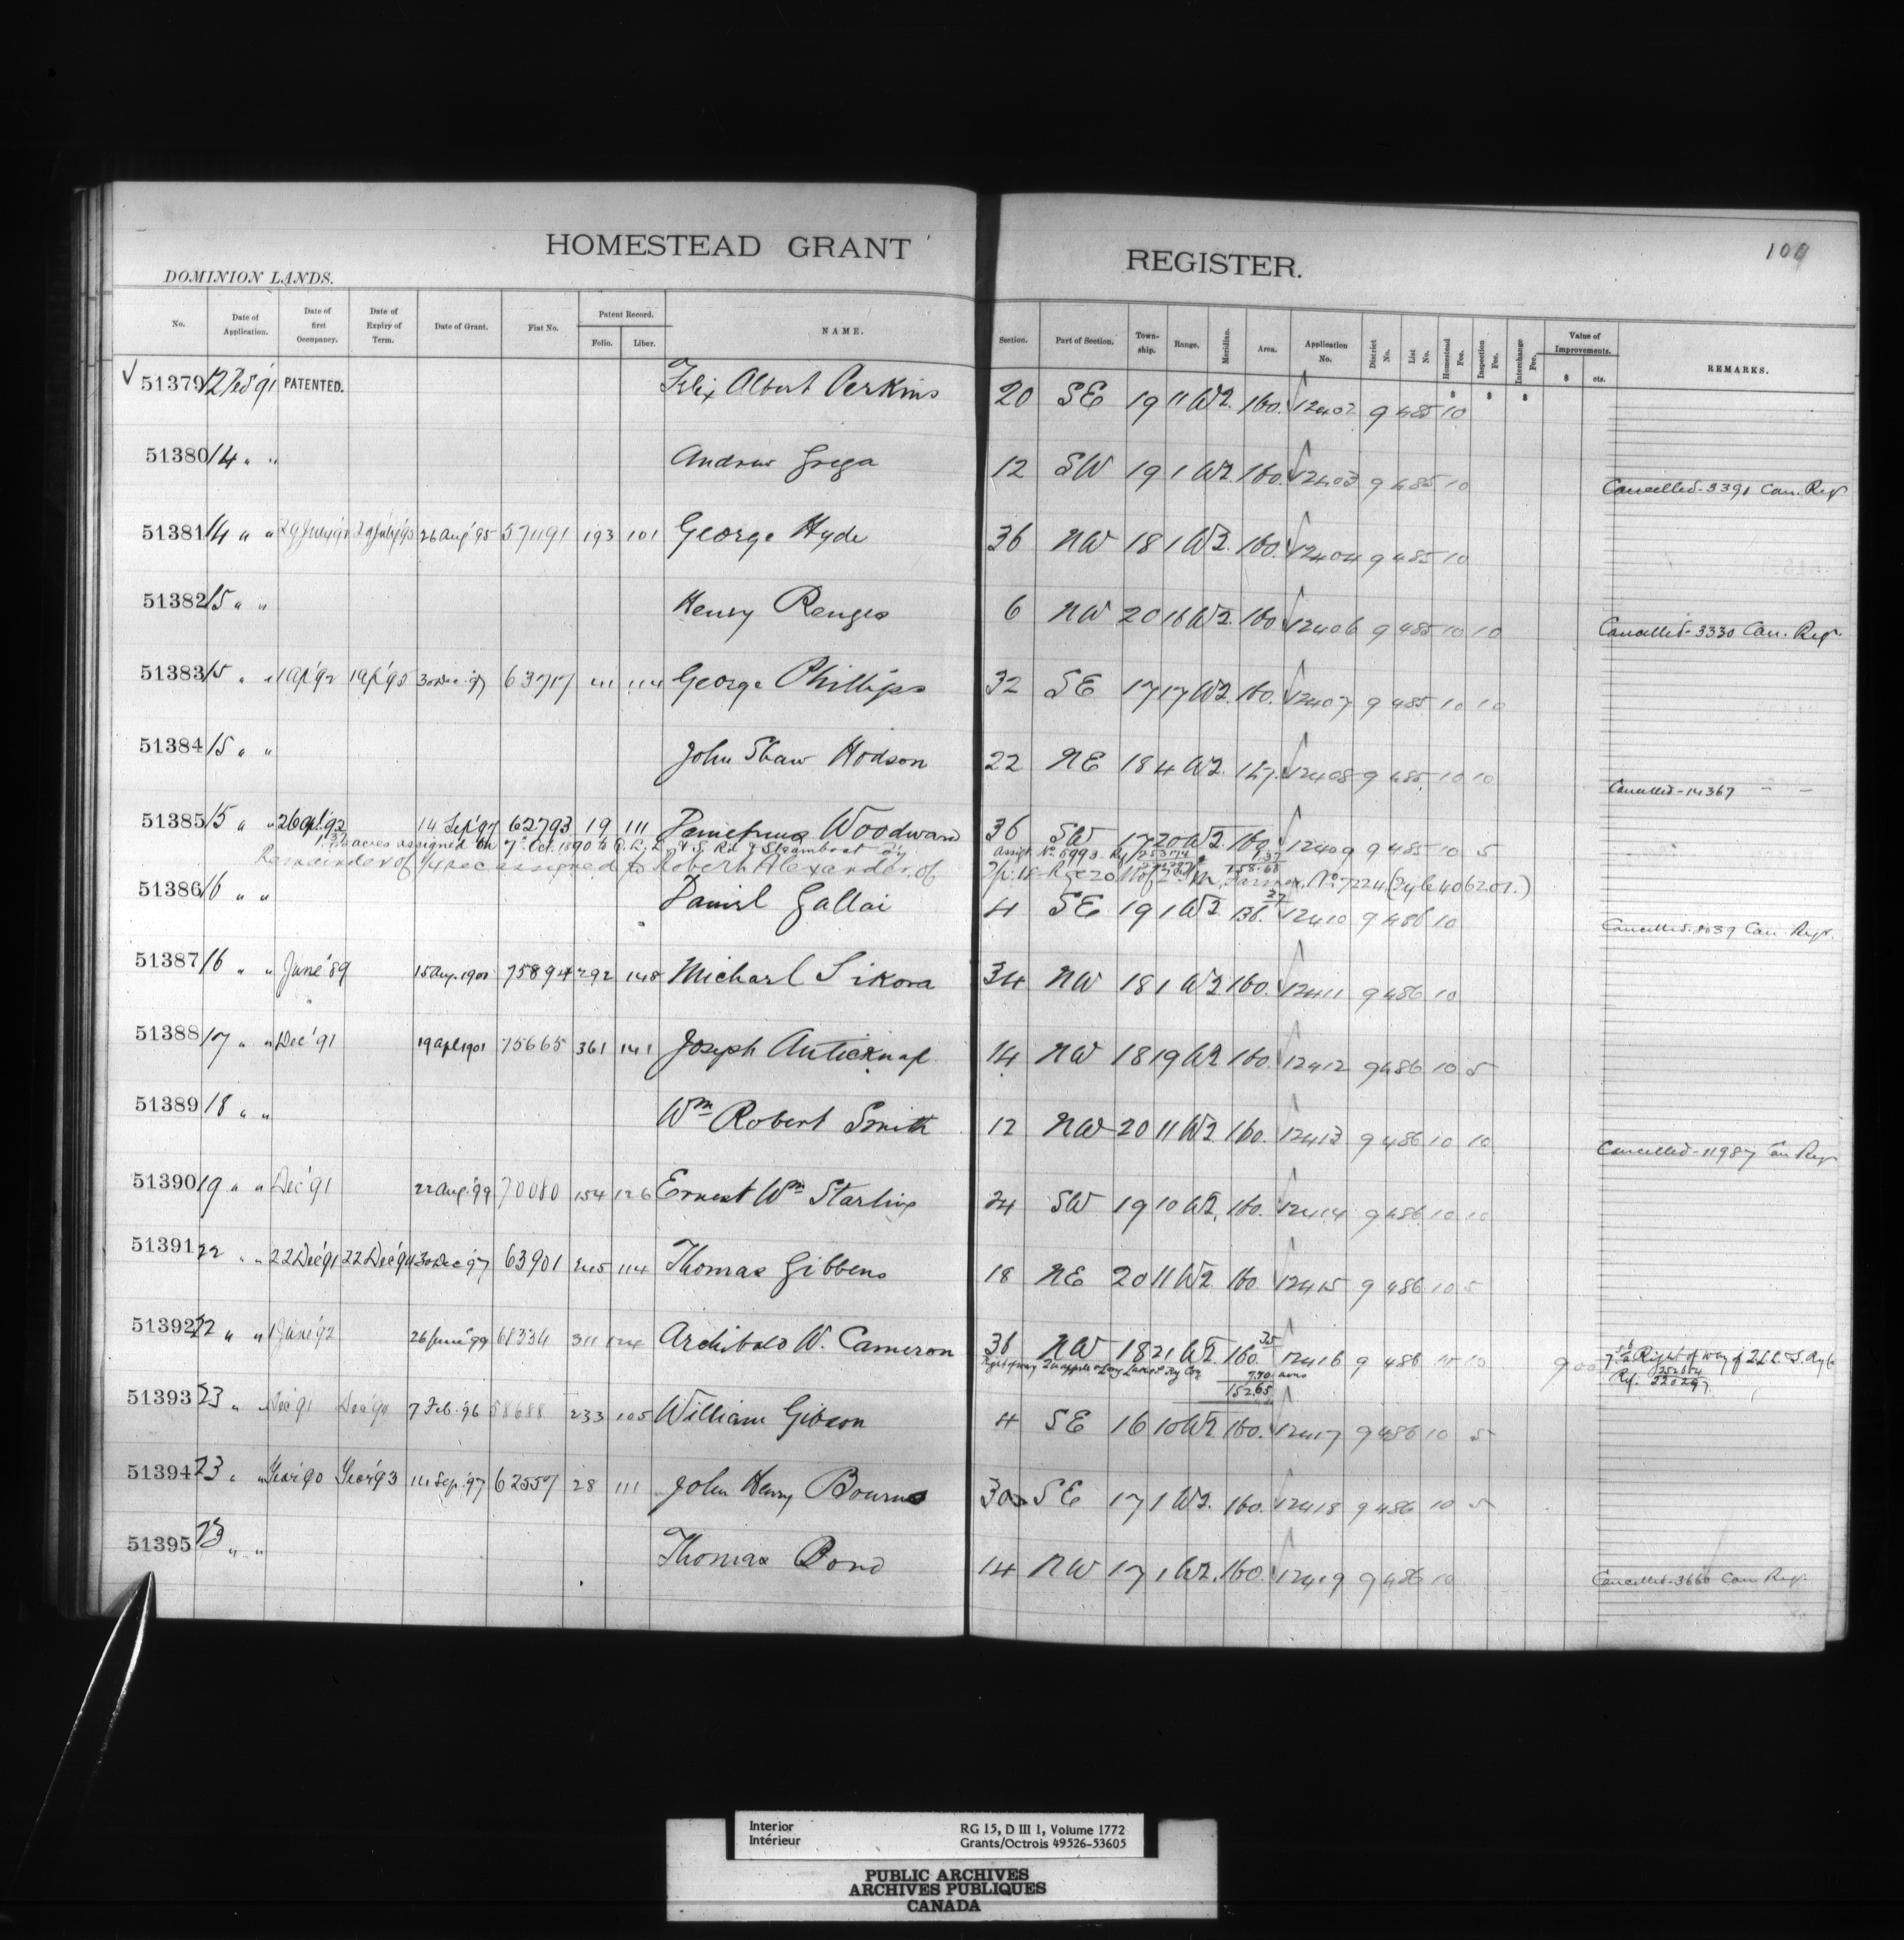 HOMESTEAD GRANT REGISTER.
100
DOMINION LANDS.
No. Date of Application. Date of first Occupancy. Date of Expiry of Term. Date of Grant. Fiat No. Patent Record. Folio. Liber. NAME. Section. Part of Section. Town-ship. Range. Meridian. Area. Application No. District No. List No. Homestead Fee. Inspection Fee. Interchange Fee. Value of Improvements. $ cts. REMARKS.
51379 12 Feb '91 PATENTED. Felix Albert Perkins 20 SE 19 11 W2. 160. 12402 9 485 10
51380 14 " " Andrew Grega 12 SW 19 1 W2. 160. 12403 9 485 10 Cancelled-3391 Can. Reg
51381 14 " " 26 Aug '95 57491 193 101 George Hyde 36 NW 18 1 W2. 160. 12404 9 485 10
51382 15 " " Henry Renges 6 NW 20 16 W2. 160 12406 9 485 10 10 Cancelled-3330 Can. Reg.
51383 15 " " 1 Ap '92 1 Ap '95 30 Dec. '97 63717 114 George Phillips 32 SE 17 17 W2. 160. 12407 9 485 10 10
51384 15 " " John Shaw Hodson 22 NE 18 4 W2. 12408 9 485 10 10 Cancelled-14367 " "
51385 15 " " 26 Apl. '92 14 Sep '97 62793 19 111 Woodward 36 SW 17 20 W2. 160 12409 9 485 10 5
1.32 acres assigned on 7th Oct. 1890 to Q. L. L. & S. Rd. & Steamboat Co.
Remainder of 1/4 sec assigned to Robert Alexander, of
Tp. 18 Rge 20 W of 2nd M, Farmer, No. 7224 (File 406201.)
51386 16 " " Daniel Gallai 4 SE 19 1 W2 136. 12410 9 486 10 Can. Regr.
51387 16 " " June '89 15 Aug. 1901 75894 292 148 Michael Sikora 34 NW 18 1 W2 160. 12411 9 486 10
51388 17 " " Dec '91 19 Apl 1901 75665 361 141 Joseph 14 NW 18 19 W2 160. 12412 9 486 10 5
51389 18 " " Wm Robert Smith 12 NW 20 11 W2 160. 12413 9 486 10 10. Cancelled-11987 Can Reg
51390 19 " " Dec '91 22 Aug. '99 70080 154 126 Ernest Wm Starling 24 SW 19 10 W2. 160. 12414 9 486 10 10
51391 22 " " 22 Dec '91 22 Dec '94 30 Dec '97 63901 245 114 Thomas Gibbens 18 NE 20 11 W2 160 12415 9 486 10 5
51392 22 " " 1 June '92 26 June '99 68334 311 124 Archibald W. Cameron 36 NW 18 21 W2 160. 12416 9 486 10 10 Right of way of Q.L.L. & S. Ry Co
Right of way Qu'appelle & Long Lake & Ry Co. 7.70 acres
152.65
51393 23 " " Dec '91 Dec '94 7 Feb. '96 58688 233 105 William Gibson 4 SE 16 10 W2 160. 12417 9 486 10 5
51394 23 " " Year '90 Year '93 14 Sep. '97 62557 28 111 John Henry Bourne 30 SE 17 1 W2. 160. 12418 9 486 10 5
51395 23 " " Thomas Bond 14 NW 17 1 W2. 160. 12419 9 486 10 Cancelled-3660 Can Reg.
Interior RG 15, D III 1, Volume 1772
Intérieur Grants/Octrois 49526-53605
PUBLIC ARCHIVES
ARCHIVES PUBLIQUES
CANADA